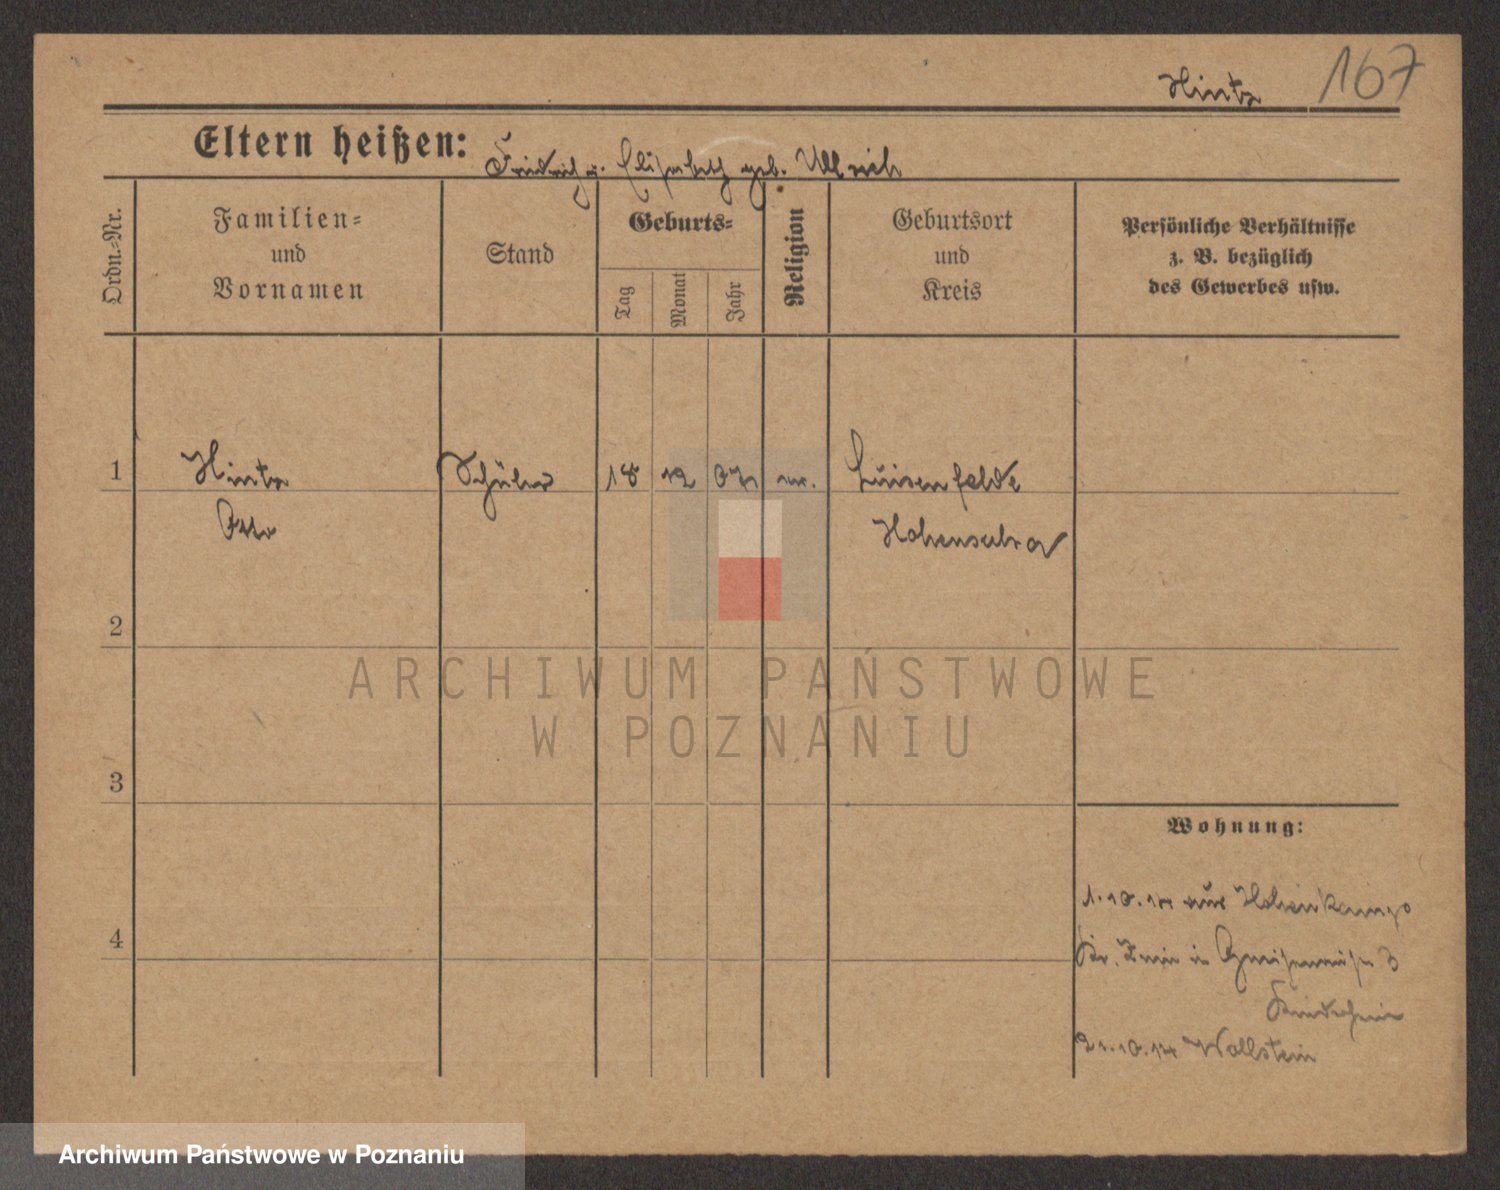 Hintz 167
Eltern heißen: Friedrich u. Elisabeth geb. Ullrich
Ordn.-Nr.
Familien-
und
Vornamen
Stand
Geburts-
Tag
Monat
Jahr
Religion
Geburtsort
und
Kreis
Persönliche Verhältnisse
z. B. bezüglich
des Gewerbes usw.
1 Hintz Schüler 18 12 07 Luisenfelde
Otto Hohensalza
2
3
4
Wohnung:
1.10.14 aus Hohenkamp
Kr. Znin in Gneisenaustr 3
Kinderheim
21.10.14 Wollstein
ARCHIWUM PAŃSTWOWE
W POZNANIU
Archiwum Państwowe w Poznaniu